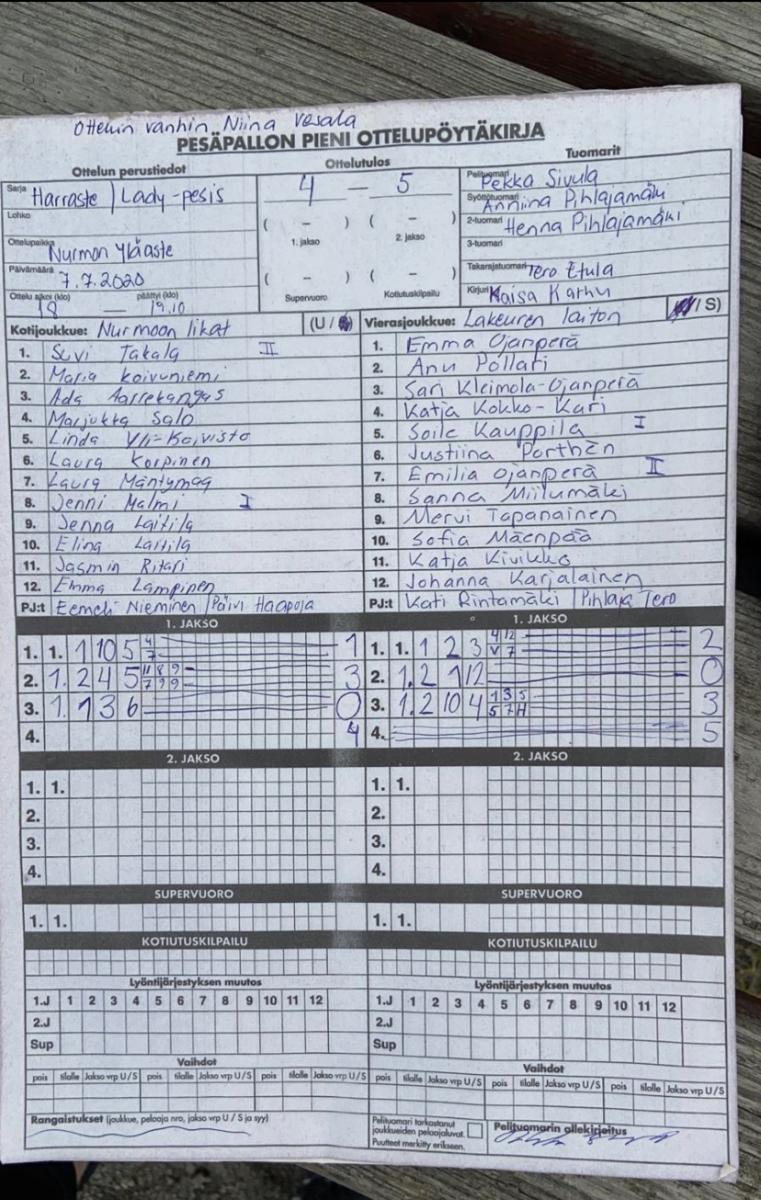 Ottelun vanhin Niina Vesala
PESÄPALLON PIENI OTTELUPÖYTÄKIRJA
Ottelun perustiedot
Ottelutulos
Tuomarit
Sarja Harraste / Lady-pesis
4 – 5
Pelituomari Pekka Sivula
Lohko
Syöttötuomari Anniina Pihlajamäki
( – ) ( – )
1. jakso 2. jakso
2-tuomari Henna Pihlajamäki
Ottelupaikka Nurmon Yläaste
3-tuomari
Päivämäärä 7.7.2020
( – ) ( – )
Takarajatuomari Tero Etula
Ottelu alkoi (klo) 18 – päättyi (klo) 19.10
Supervuoro Kotiutuskilpailu
Kirjuri Kaisa Karhu
Kotijoukkue: Nurmoon likat (U /
1. Suvi Takala II
2. Maria Koivuniemi
3. Ada Aarrekangas
4. Marjukka Salo
5. Linda Yli-Koivisto
6. Laura Korpinen
7. Laura Mäntymaa
8. Jenni Malmi I
9. Jenna Laitila
10. Elina Laitila
11. Jasmin Ritari
12. Emma Lampinen
PJ:t Eemeli Nieminen / Päivi Haapoja
Vierasjoukkue: Lakeuren laiton / S)
1. Emma Ojanperä
2. Anu Pollari
3. Sari Kleimola-Ojanperä
4. Katja Kokko-Kari
5. Soile Kauppila I
6. Justiina Porthén
7. Emilia Ojanperä II
8. Sanna Miilumäki
9. Mervi Tapanainen
10. Sofia Mäenpää
11. Katja Kivikko
12. Johanna Karjalainen
PJ:t Kati Rintamäki / Pihlaja Tero
1. JAKSO
1. 1. 1 10 5 4 7 1
2. 1. 2 4 5 11 8 9 7 9 9 3
3. 1. 1 3 6 0
4. 4
1. JAKSO
1. 1. 1 2 3 4 12 V 7 2
2. 1. 2 1 12 0
3. 1. 2 10 4 1 3 5 5 7 H 3
4. 5
2. JAKSO
1. 1.
2.
3.
4.
2. JAKSO
1. 1.
2.
3.
4.
SUPERVUORO
1. 1.
SUPERVUORO
1. 1.
KOTIUTUSKILPAILU
KOTIUTUSKILPAILU
Lyöntijärjestyksen muutos
1.J 1 2 3 4 5 6 7 8 9 10 11 12
2.J
Sup
Lyöntijärjestyksen muutos
1.J 1 2 3 4 5 6 7 8 9 10 11 12
2.J
Sup
Vaihdot
pois tilalle Jakso vrp U/S pois tilalle Jakso vrp U/S pois tilalle Jakso vrp U/S
Vaihdot
pois tilalle Jakso vrp U/S pois tilalle Jakso vrp U/S pois tilalle Jakso vrp U/S
Rangaistukset (joukkue, pelaaja nro, jakso vrp U / S ja syy)
Pelituomari tarkastanut
joukkueiden pelaajaluvat.
Puutteet merkitty erikseen.
Pelituomarin allekirjoitus